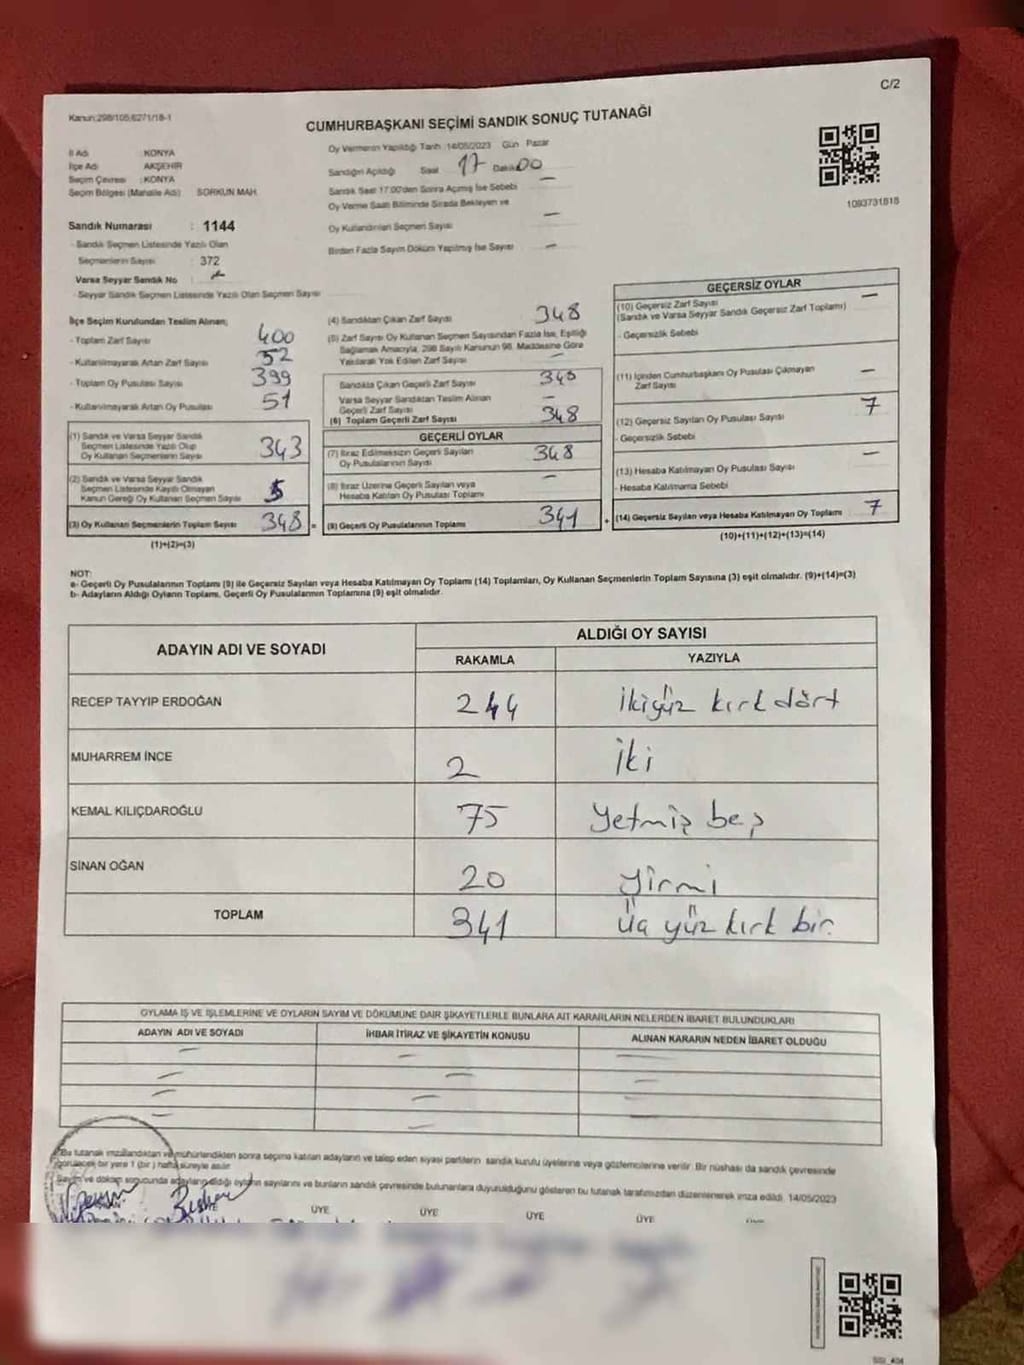 C/2
Kanun:298/105,6271/18-1
CUMHURBAŞKANI SEÇİMİ SANDIK SONUÇ TUTANAĞI
İl Adı : KONYA
İlçe Adı : AKŞEHİR
Seçim Çevresi : KONYA
Seçim Bölgesi (Mahalle Adı) SORKUN MAH.
Oy Vermenin Yapıldığı Tarih :14/05/2023 Gün Pazar
Sandığın Açıldığı Saat 17 Dakika 00
Sandık Saat 17:00'den Sonra Açılmış İse Sebebi —
Oy Verme Saati Bitiminde Sırada Bekleyen ve
Oy Kullandırılan Seçmen Sayısı —
Birden Fazla Sayım Döküm Yapılmış İse Sayısı —
1093731818
Sandık Numarası : 1144
- Sandık Seçmen Listesinde Yazılı Olan
Seçmenlerin Sayısı : 372
Varsa Seyyar Sandık No :
- Seyyar Sandık Seçmen Listesinde Yazılı Olan Seçmen Sayısı
İlçe Seçim Kurulundan Teslim Alınan;
- Toplam Zarf Sayısı 400
- Kullanılmayarak Artan Zarf Sayısı 52
- Toplam Oy Pusulası Sayısı 399
- Kullanılmayarak Artan Oy Pusulası 51
(1) Sandık ve Varsa Seyyar Sandık
Seçmen Listesinde Yazılı Olup
Oy Kullanan Seçmenlerin Sayısı 343
(2) Sandık ve Varsa Seyyar Sandık
Seçmen Listesinde Kayıtlı Olmayan
Kanun Gereği Oy Kullanan Seçmen Sayısı 5
(3) Oy Kullanan Seçmenlerin Toplam Sayısı 348 =
(1)+(2)=(3)
(4) Sandıktan Çıkan Zarf Sayısı 348
(5) Zarf Sayısı Oy Kullanan Seçmen Sayısından Fazla İse, Eşitliği
Sağlamak Amacıyla, 298 Sayılı Kanunun 98. Maddesine Göre
Yakılarak Yok Edilen Zarf Sayısı —
Sandıkta Çıkan Geçerli Zarf Sayısı 348
Varsa Seyyar Sandıktan Teslim Alınan
Geçerli Zarf Sayısı —
(6) Toplam Geçerli Zarf Sayısı 348
GEÇERLİ OYLAR
(7) İtiraz Edilmeksizin Geçerli Sayılan
Oy Pusulalarının Sayısı 348
(8) İtiraz Üzerine Geçerli Sayılan veya
Hesaba Katılan Oy Pusulası Toplamı —
(9) Geçerli Oy Pusulalarının Toplamı 341 +
GEÇERSİZ OYLAR
(10) Geçersiz Zarf Sayısı —
(Sandık ve Varsa Seyyar Sandık Geçersiz Zarf Toplamı)
- Geçersizlik Sebebi
(11) İçinden Cumhurbaşkanı Oy Pusulası Çıkmayan
Zarf Sayısı —
(12) Geçersiz Sayılan Oy Pusulası Sayısı 7
- Geçersizlik Sebebi
(13) Hesaba Katılmayan Oy Pusulası Sayısı —
- Hesaba Katılmama Sebebi
(14) Geçersiz Sayılan veya Hesaba Katılmayan Oy Toplamı 7
(10)+(11)+(12)+(13)=(14)
NOT:
a- Geçerli Oy Pusulalarının Toplamı (9) ile Geçersiz Sayılan veya Hesaba Katılmayan Oy Toplamı (14) Toplamları, Oy Kullanan Seçmenlerin Toplam Sayısına (3) eşit olmalıdır. (9)+(14)=(3)
b- Adayların Aldığı Oyların Toplamı, Geçerli Oy Pusulalarının Toplamına (9) eşit olmalıdır.
ADAYIN ADI VE SOYADI ALDIĞI OY SAYISI
RAKAMLA YAZIYLA
RECEP TAYYIP ERDOĞAN 244 ikiyüz kırk dört
MUHARREM İNCE 2 iki
KEMAL KILIÇDAROĞLU 75 Yetmiş beş
SİNAN OĞAN 20 yirmi
TOPLAM 341 üç yüz kırk bir.
OYLAMA İŞ VE İŞLEMLERİNE VE OYLARIN SAYIM VE DÖKÜMÜNE DAİR ŞİKAYETLERLE BUNLARA AİT KARARLARIN NELERDEN İBARET BULUNDUKLARI
ADAYIN ADI VE SOYADI İHBAR İTİRAZ VE ŞİKAYETİN KONUSU ALINAN KARARIN NEDEN İBARET OLDUĞU
Bu tutanak imzalandıktan ve mühürlendikten sonra seçime katılan adayların ve talep eden siyasi partilerin sandık kurulu üyelerine veya gözlemcilerine verilir. Bir nüshası da sandık çevresinde
görülecek bir yere 1 (bir) hafta süreyle asılır.
Sayım ve döküm sonucunda adayların aldığı oyların sayılarını ve bunların sandık çevresinde bulunanlara duyurulduğunu gösteren bu tutanak tarafımızdan düzenlenerek imza edildi. 14/05/2023
ÜYE ÜYE ÜYE ÜYE ÜYE